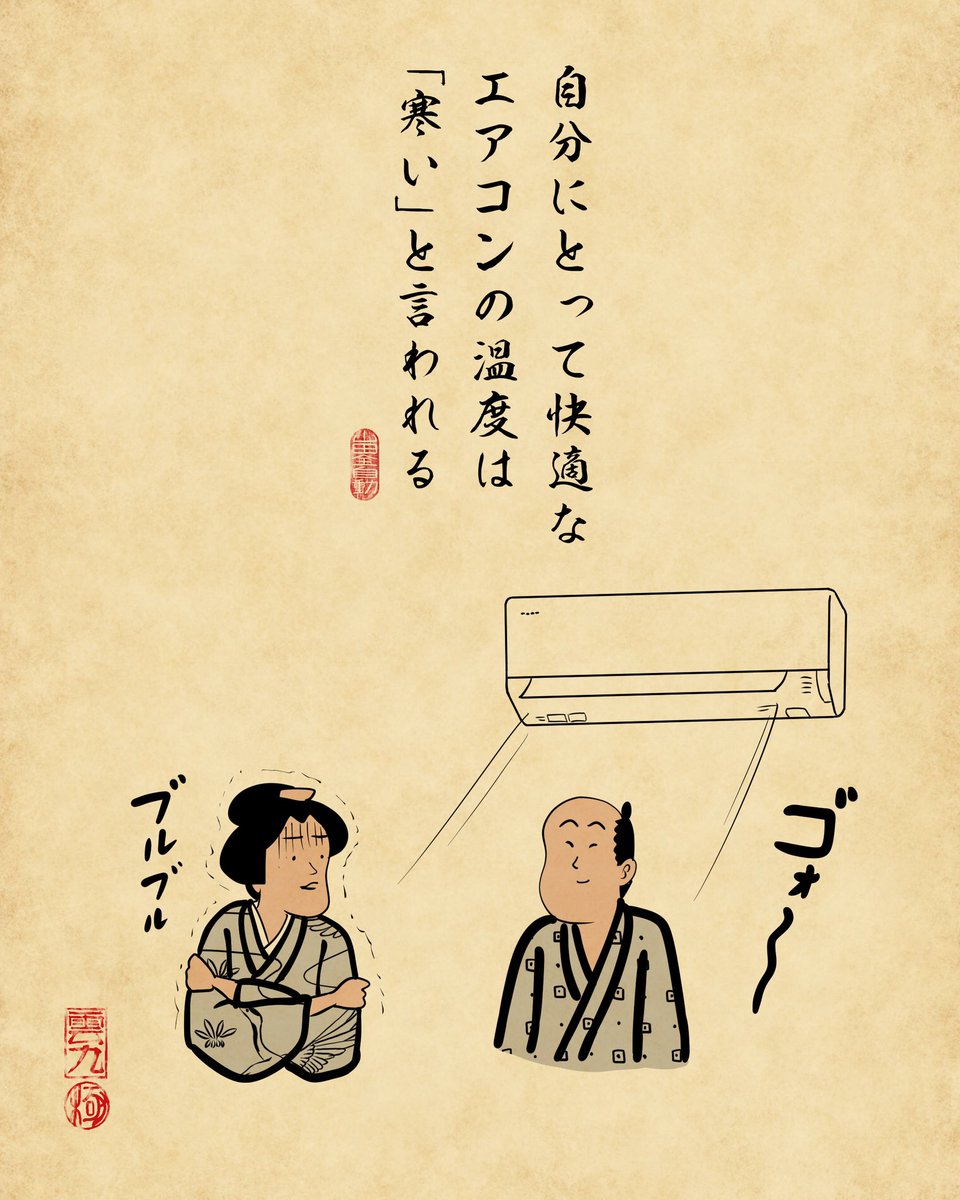 自分にとって快適な
エアコンの温度は
「寒い」と言われる
ゴォ〜
ブルブル